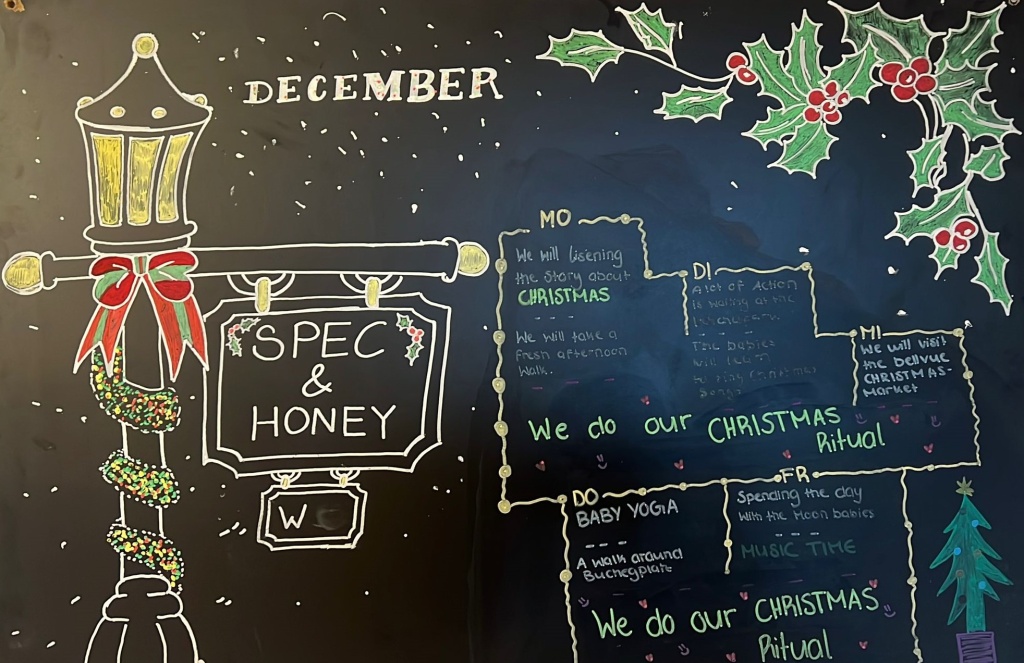 DECEMBER
SPEC
&
HONEY
W
MO
We will listening
the Story about
CHRISTMAS
We will take a
Fresh afternoon
Walk.
DI
A lot of Action
is waiting at the
The babies
will learn
to sing Christmas
Songs
MI
We will visit
the bellvue
CHRISTMAS-
Market
We do our CHRISTMAS
Ritual
DO
BABY YOGA
A walk around
Bucheggplatz
FR
Spending the day
With the Moon babies
MUSIC TIME
We do our CHRISTMAS
Ritual